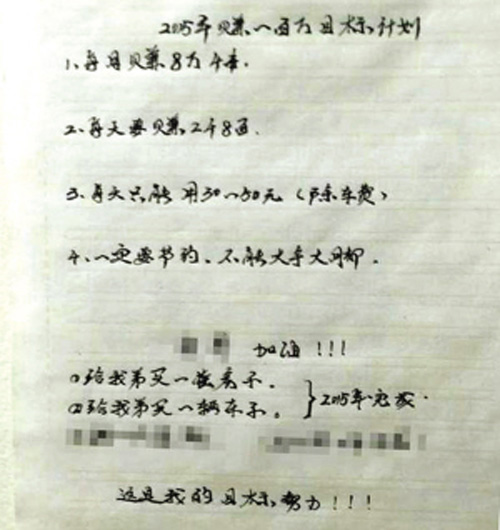 2015年赚一百万目标计划
1、每月赚8万4本.
2.每天要赚2千8百.
3.每天只能用30~50元(除车费)
4.一定要节约、不能大手大脚.
加油!!!
①给我弟买一套房子.
②给我弟买一辆车子。 } 2015年完成.
这是我的目标努力!!!